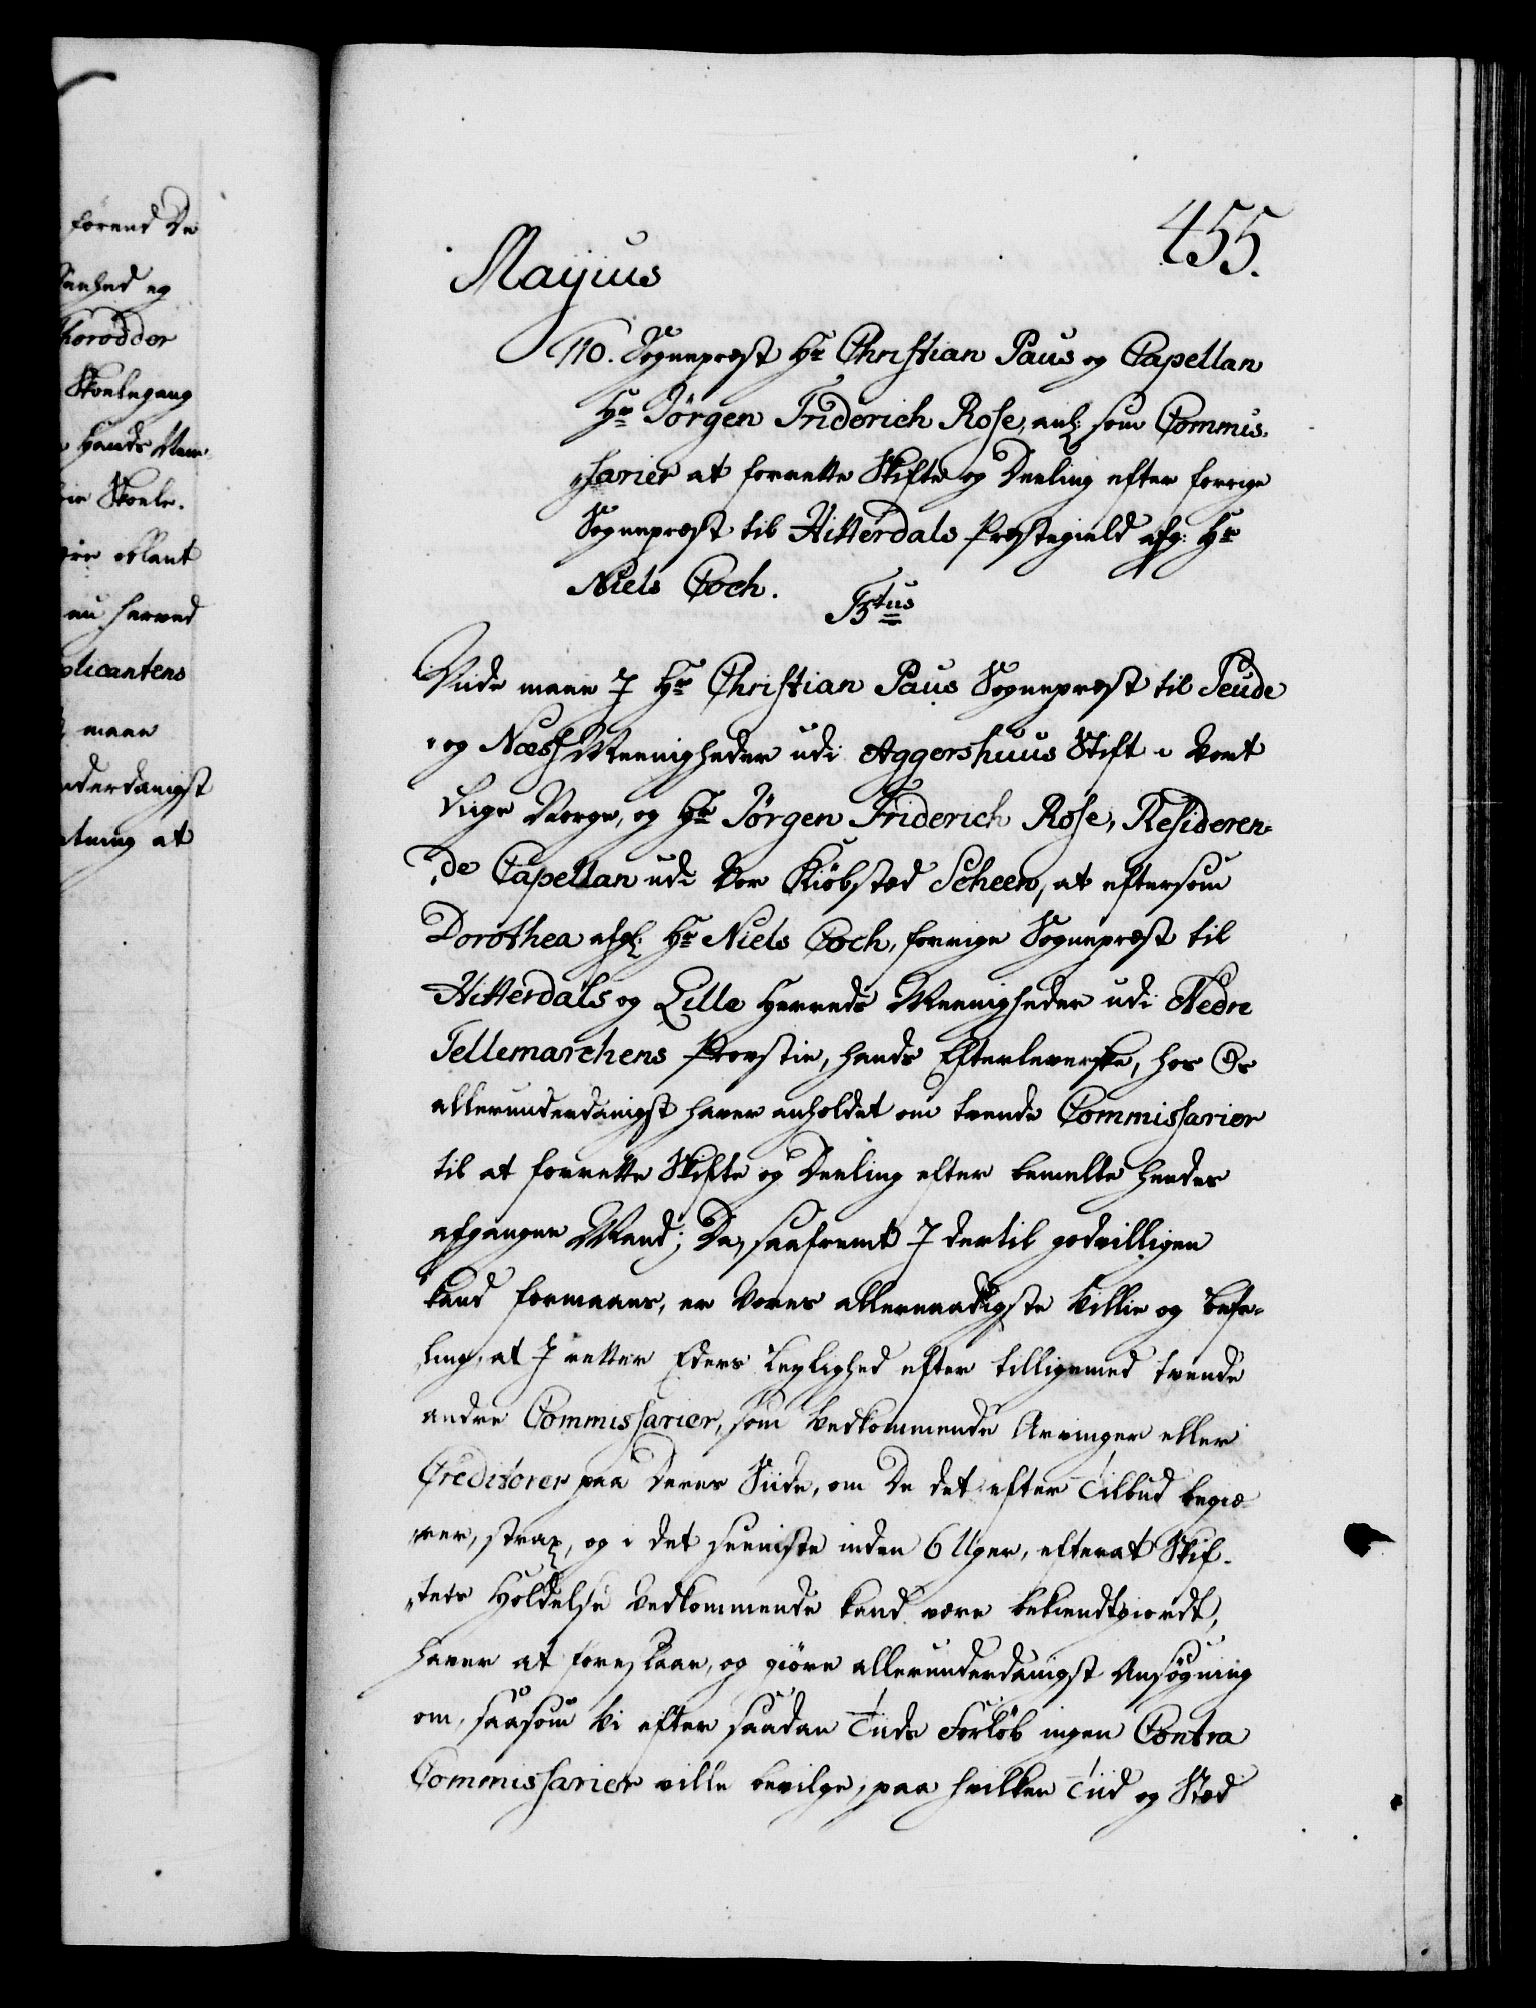 455.
Mayjus
110. Sognepræst Hr Christian Paus og Capellan
Hr Jörgen Friderich Rose, anl: som Commis-
sarier at forrette Skifte og Deeling efter forrige
Sognepræst til Hitterdals Præstegield afg: Hr
Niels Coch.
Viide maae I Hr Christian Paus Sognepræst til Seude
og Næss Meenigheder udi Aggershuus Stift i Vort
Riige Norge, og Hr Jörgen Friderich Rose, Resideren-
de Capellan udi Vor Kiöbstæd Scheen, at eftersom
Dorothea afg: Hr Niels Coch, forrige Sognepræst til
Hitterdals og Lille Herreds Meenigheder udi Nedre
Tellemarchens Provstie, hands Efterleverske, hos Os
allerunderdanigst haver anholdet om tvende Commissarier
til at forrette Skifte og Deeling efter bemelte hendes
afgangne Mand; Da, saafremt I dertil godvilligen
kand formaaes, er Vores allernaadigste Villie og Befa-
ling, at I retter Eders Leylighed efter tilligemed tvende
andre Commissarier, som Vedkommende Arvinger eller
Creditorer paa Deres Siide, om De det efter Tilbud begiæ-
rer, strax, og i det seeniste inden 6 Uger, efterat Skif-
tets Holdelse Vedkommende kand være bekiendtgiordt,
haver at foreslaae, og giöre allerunderdanigst Ansögning
om, saasom Vi efter saadan Tiids Forlöb ingen Contra
Commissarier ville bevilge, paa hvilken Tiid og Stæd
forend De
og
Skoelegang
Hands
Skoele.
herved
plicantens
maae
nderdanigst
at